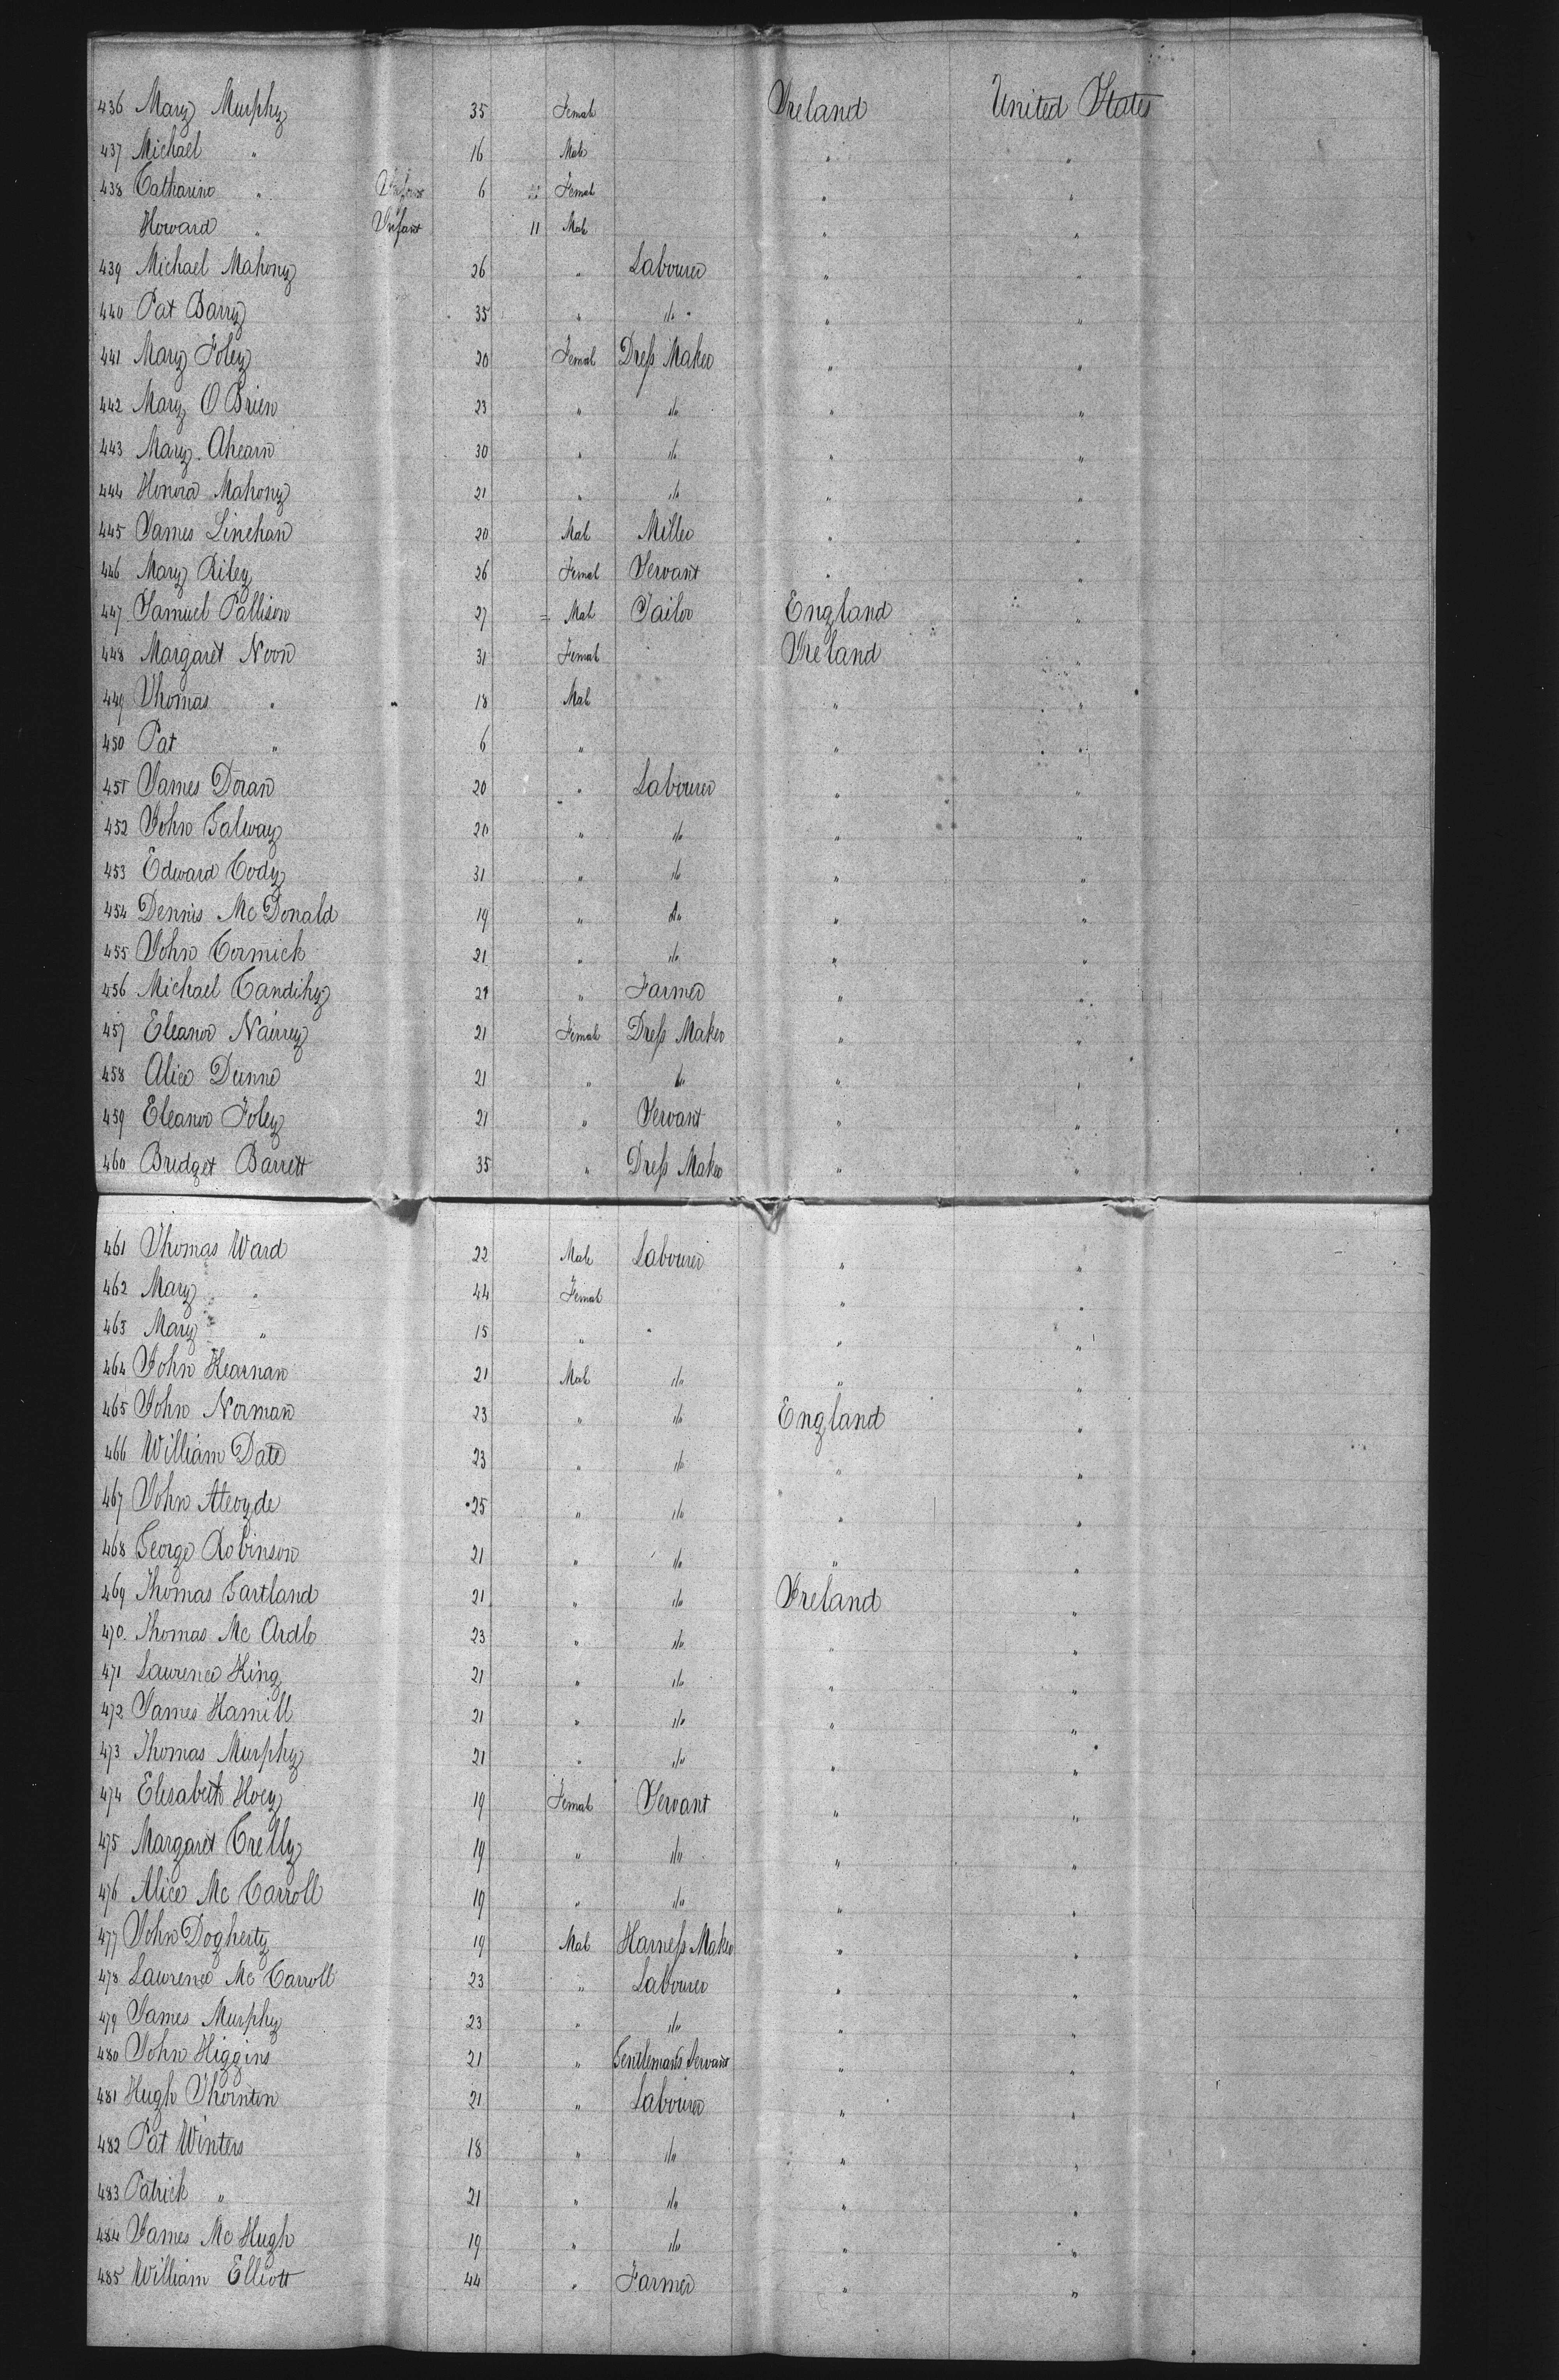 436 Mary Murphy 35 Female Ireland United States
437 Michael " 16 Male " "
438 Catharine " 6 Female " "
Howard " Infant 11 Male " "
439 Michael Mahony 26 " Labourer " "
440 Pat Barry 35 " do " "
441 Mary Foley 20 Female Dress Maker " "
442 Mary O Brien 23 " do " "
443 Mary Ahearn 30 " do " "
444 Honora Mahony 21 " do " "
445 James Linehan 20 Male Miller " "
446 Mary Riley 26 Female Servant " "
447 Samuel Pallison 27 Male Tailor England "
448 Margaret Noon 31 Female Ireland "
449 Thomas " 18 Male " "
450 Pat " 6 " " "
451 James Doran 20 " Labourer " "
452 John Galway 20 " do " "
453 Edward Cody 31 " do " "
454 Dennis Mc Donald 19 " do " "
455 John Cormick 21 " do " "
456 Michael Candihy 21 " Farmer " "
457 Eleanor Nairey 21 Female Dress Maker " "
458 Alice Dunne 21 " do " "
459 Eleanor Foley 21 " Servant " "
460 Bridget Barrett 35 " Dress Maker " "
461 Thomas Ward 22 Male Labourer " "
462 Mary " 44 Female " "
463 Mary " 15 " " "
464 John Kearnan 21 Male do " "
465 John Norman 23 " do England "
466 William Date 23 " do " "
467 John 25 " do " "
468 George Robinson 21 " do " "
469 Thomas Gartland 21 " do Ireland "
470 Thomas Mc Ardle 23 " do " "
471 Laurence King 21 " do " "
472 James Hamill 21 " do " "
473 Thomas Murphy 21 " do " "
474 Elisabeth Hoey 19 Female Servant " "
475 Margaret Crelly 19 " do " "
476 Alice Mc Carroll 19 " do " "
477 John Dogherty 19 Male Harness Maker " "
478 Laurence Mc Carroll 23 " Labourer " "
479 James Murphy 23 " do " "
480 John Higgins 21 " Gentleman's Servant " "
481 Hugh Thornton 21 " Labourer " "
482 Pat Winters 18 " do " "
483 Patrick " 21 " do " "
484 James Mc Hugh 19 " do " "
485 William Elliott 44 " Farmer " "